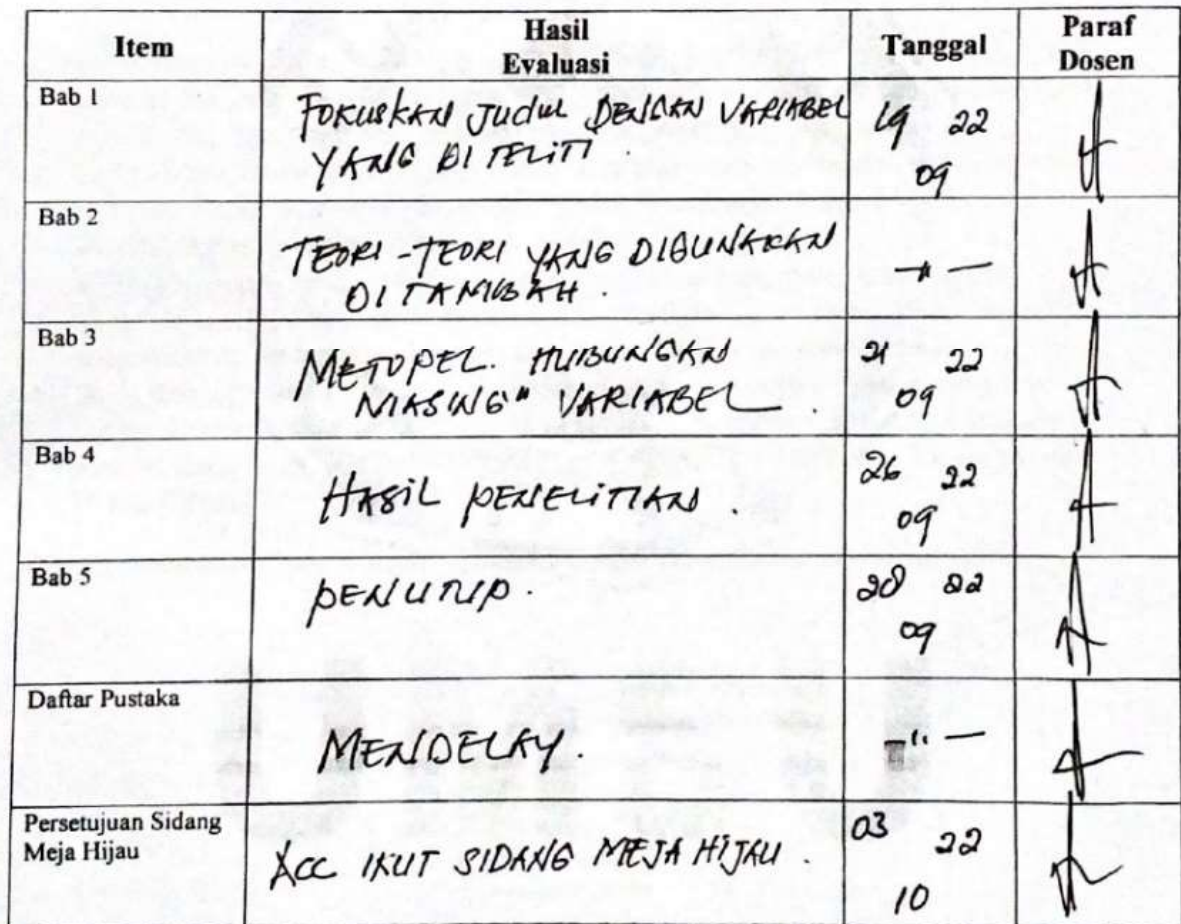 Item
Hasil
Evaluasi
Tanggal
Paraf
Dosen
Bab 1
FOKUSKAN JUDUL DENGAN VARIABEL
YANG DI TELITI.
19 22
09
Bab 2
TEORI-TEORI YANG DIGUNAKAN
DITAMBAH.
—"—
Bab 3
METOPEL. HUBUNGKAN
MASING" VARIABEL.
21 22
09
Bab 4
HASIL PENELITIAN.
26 22
09
Bab 5
PENUTUP.
28 22
09
Daftar Pustaka
MENDELEY.
—"—
Persetujuan Sidang
Meja Hijau
ACC IKUT SIDANG MEJA HIJAU.
03 22
10